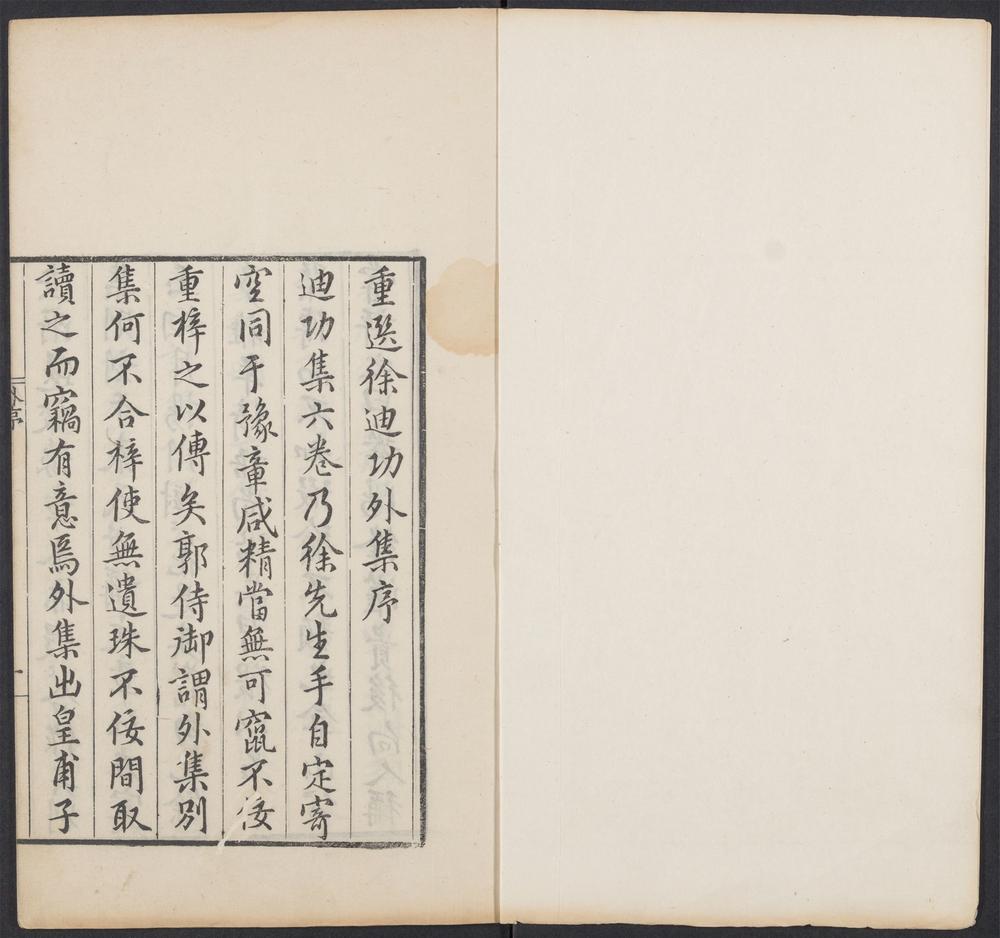 重選徐迪功外集序
迪功集六卷乃徐先生手自定寄
空同于豫章咸精當無可竄不佞
重梓之以傳矣郭侍御謂外集別
集何不合梓使無遺珠不佞間取
讀之而竊有意焉外集出皇甫子
外序